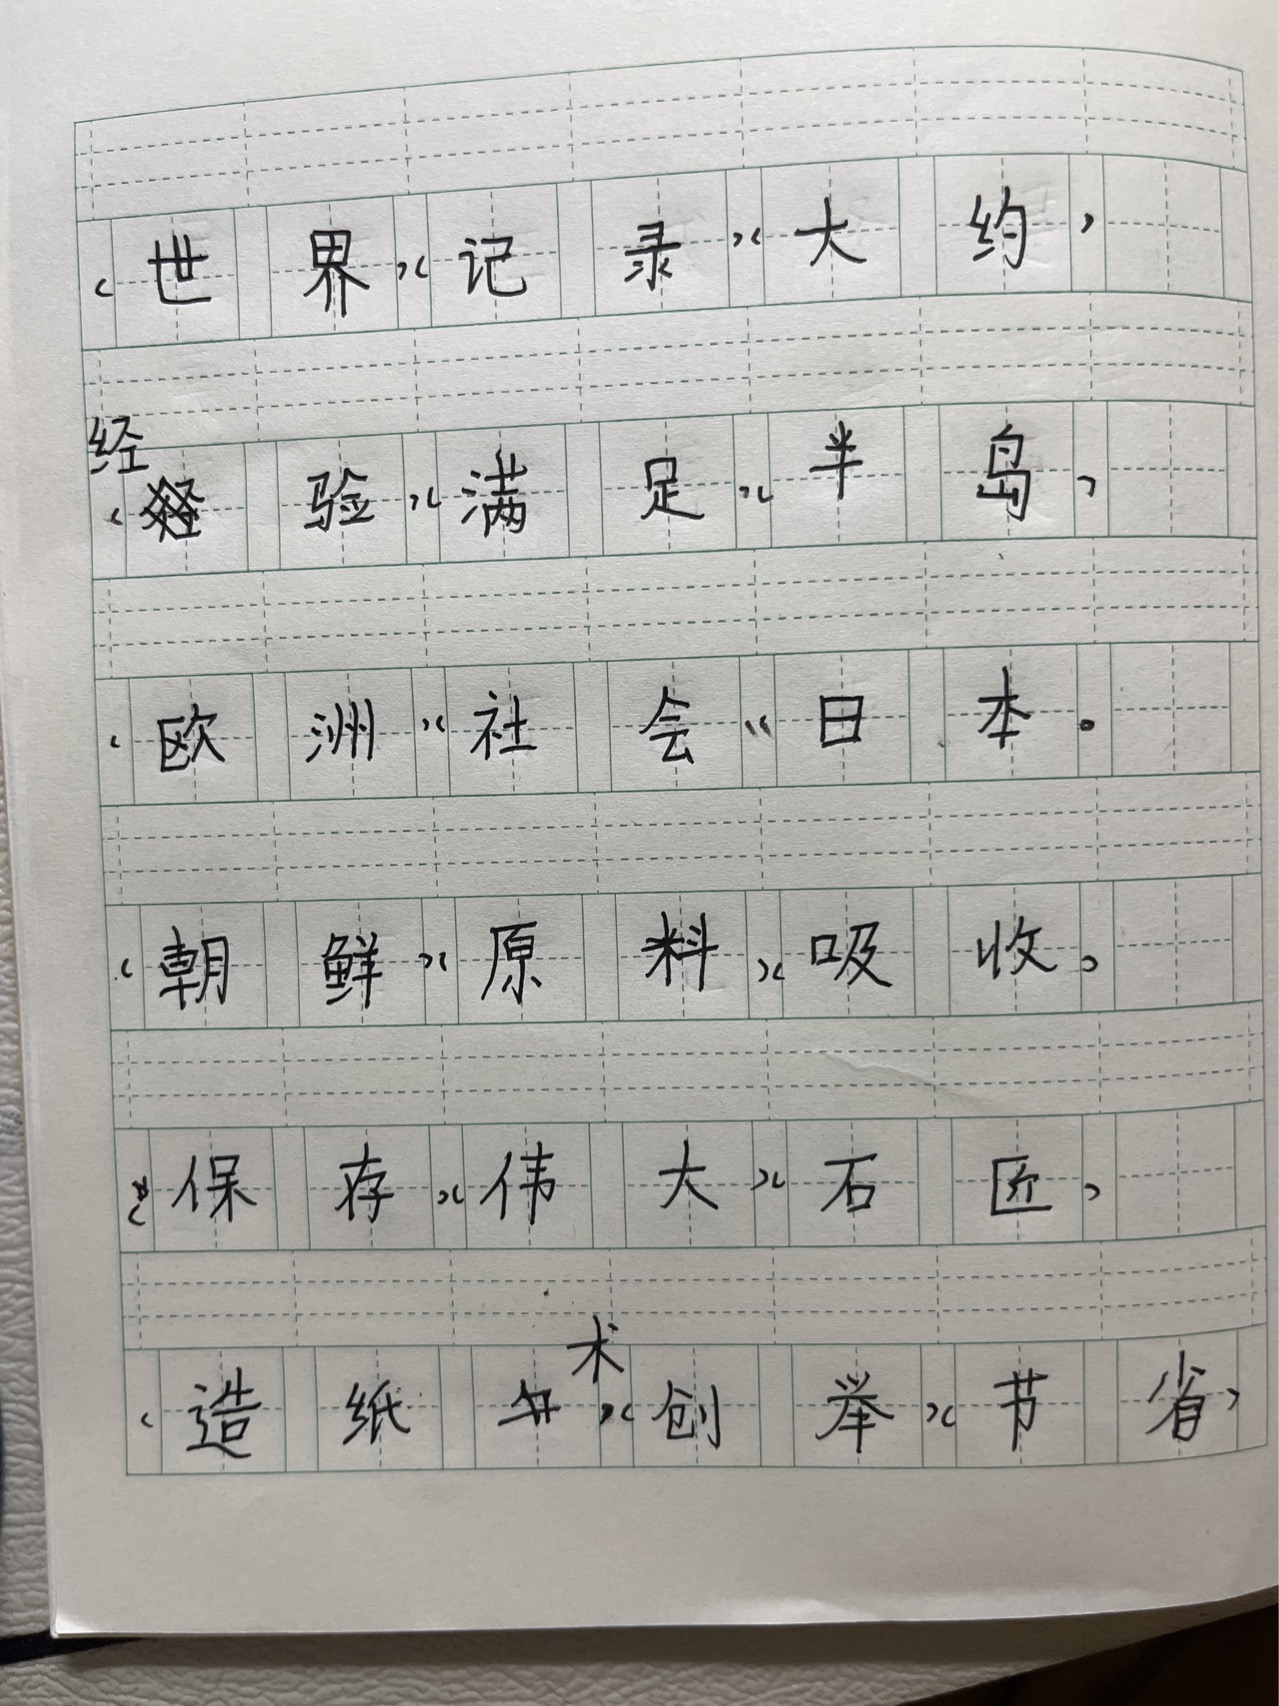 (世界)(记录)(大约)
(经验)(满足)(半岛)
(欧洲)(社会)(日本)
(朝鲜)(原料)(吸收)
(保存)(伟大)(石匠)
(造纸术)(创举)(节省)